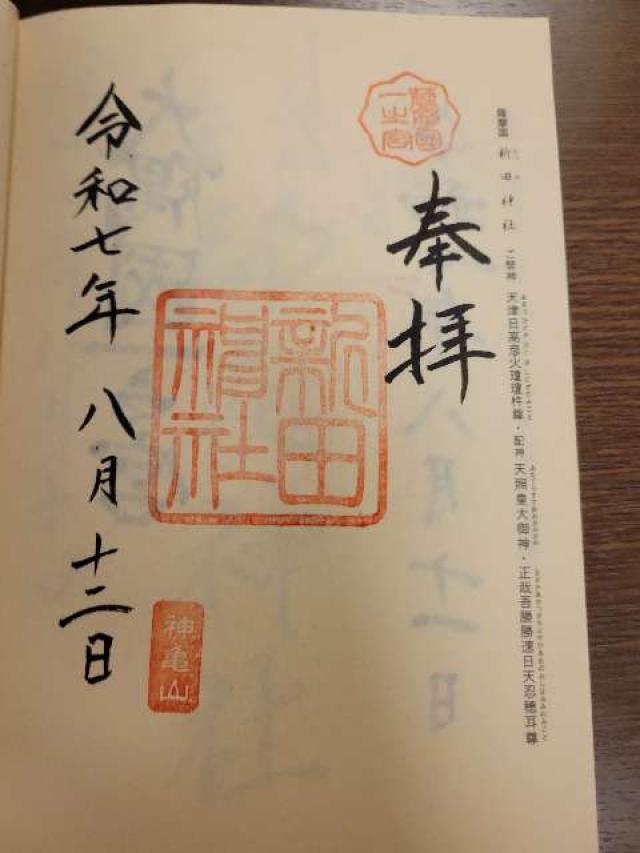 薩摩国 新田神社 ご祭神 天津日高彦火瓊瓊杵尊・配神 天照皇大御神・正哉吾勝勝速日天忍穂耳尊
薩摩国
一之宮
奉拝
新田
神社
神亀山
令和七年 八月 十二日